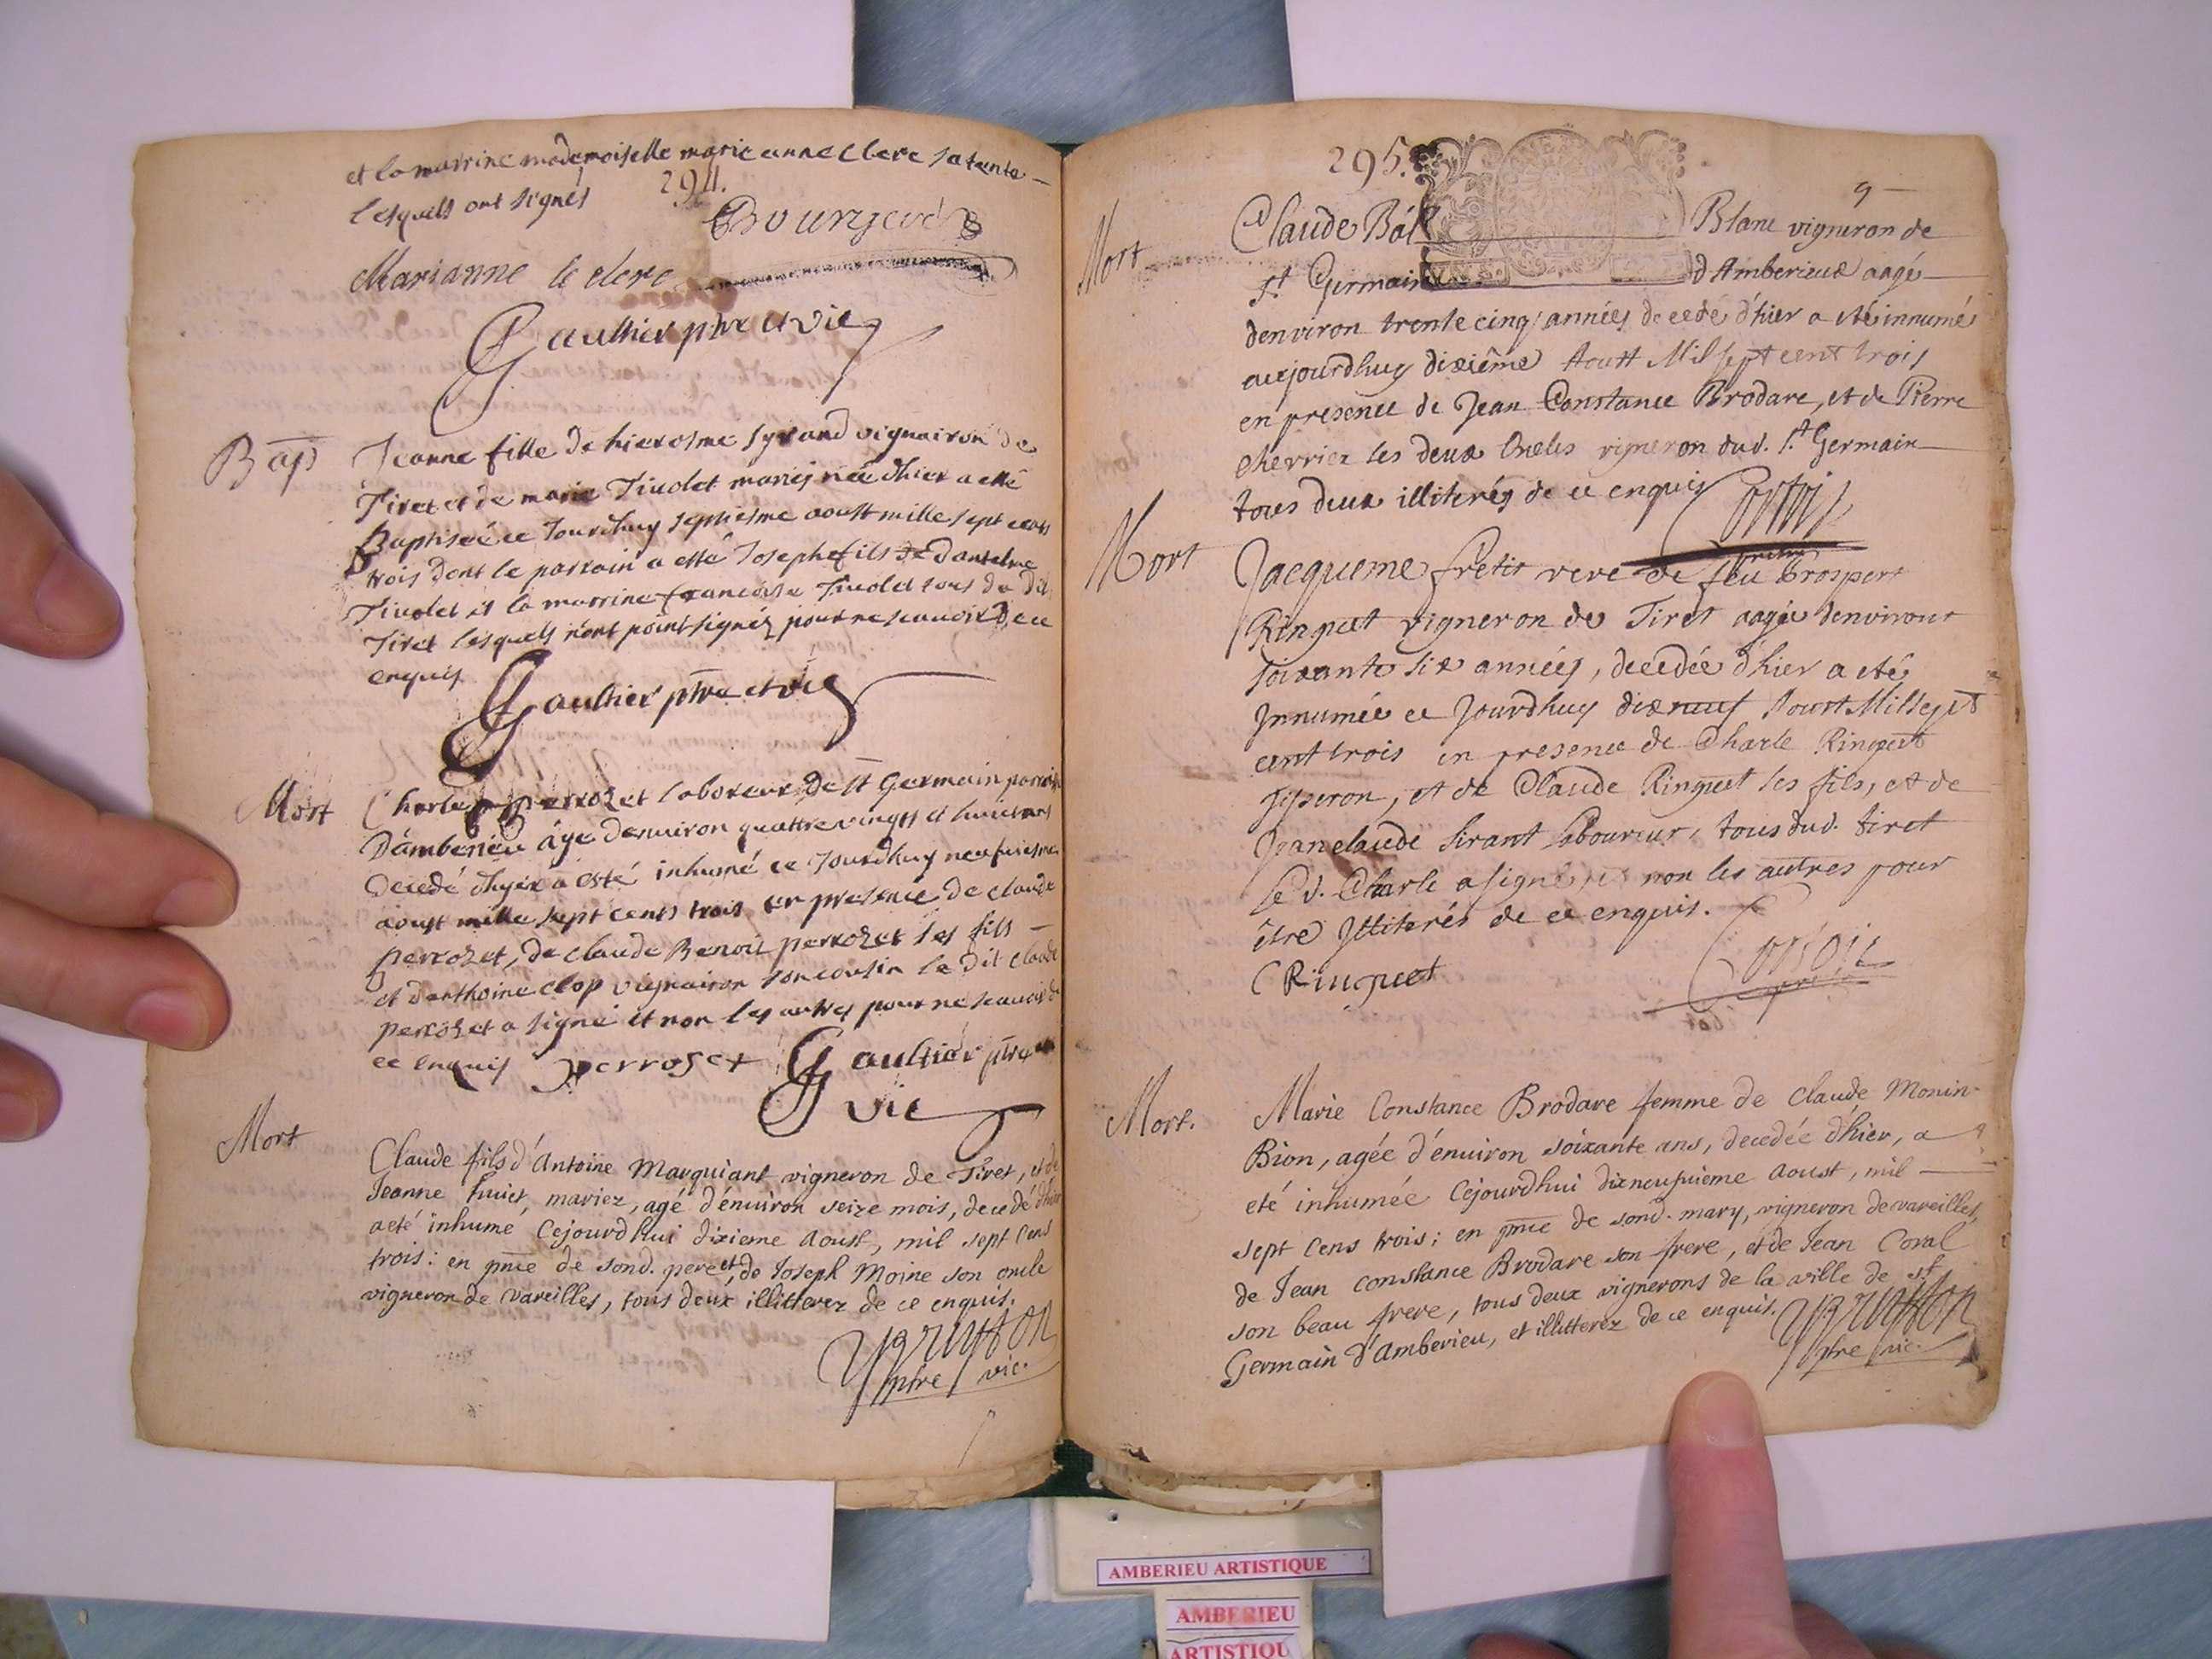 et la marrine mademoiselle marie anne Clerc sa tente
lesquels ont signés
294.
Bourgeois
Marianne le clerc
Gaulthier ptre et vic
Bap
Jeanne fille de hierosme syrand vignairon de
Tiret et de marie Tiuolet mariés née dhier a esté
Baptisée ce Jourdhuy septiesme aoust mille sept cents
trois dont le parrain a esté Joseph fils de dantelme
Tiuolet et la marrine francoise Tiuolet tous du dit
Tiret lesquels n'ont point signéz pour ne scauoir de ce
enquis
Gaulthier ptre et vic
Mort
Charle perrozet laboreur de st Germain parroisse
Damberieu âgé denuiron quattre vingts et huict ans
decedé dhyer a esté inhumé ce Jourdhuy neufuiesme
aoust mille sept cents trois en presence de claude
perrozet, de claude Benoit perrozet ses fils
et danthoine clop vignairon son cousin le dit claude
perrozet a signé et non les autres pour ne scauoir de
ce enquis perroset Gaulthier ptre
vic
Mort
Claude fils d'Antoine Marquiant vigneron de Tiret, et de
Jeanne huict, mariez, agé d'énuiron seize mois, decedé d'hier
a eté inhumé Cejourd'hui dixieme Aoust, mil sept Cens
trois: en pnce de sond. pere et, de Joseph Moine son oncle
vigneron de vareilles, tous deux illitterez de ce enquis.
ptre vic.
295.
9
Mort
Claude Blanc vigneron de
St Germain d'Amberieux aagé
denviron trente cinq années decedé d'hier a eté innumé
aujourdhuy dixiême Aoust Mil sept cent trois
en presence de Jean Constance Brodare, et de Pierre
cherrier les deux Oncles vigneron dud. St Germain
tous deux illiterés de ce enquis
Mort
Jacqueme fretit veve de feu Prospert
Ringuet vigneron de Tiret aagée denviront
soixante six années, decedée d'hier a eté
Innumée ce Jourdhuy dixneuf Aoust Mil sept
cent trois en presence de Charle Ringuet
, et de Claude Ringuet ses fils, et de
Jean claude Sirant Laboureur, tous dud. tiret
Le d. Charle a signé et non les autres pour
être Illiterés de ce enquis.
C Ringuet
Mort.
Marie Constance Brodare femme de Claude Monin-
Bion, agée d'énuiron soixante ans, decedée d'hier, a
eté inhumée Cejourdhui dixneufuieme Aoust, mil
sept Cens trois; en pnce de sond. mary, vigneron de vareilles,
de Jean Constance Brodare son frere, et de Jean Coral
son beau frere, tous deux vignerons de la ville de St
Germain d'Amberieu, et illitterez de ce enquis.
ptre vic.
AMBERIEU ARTISTIQUE
AMBERIEU
ARTISTIQU